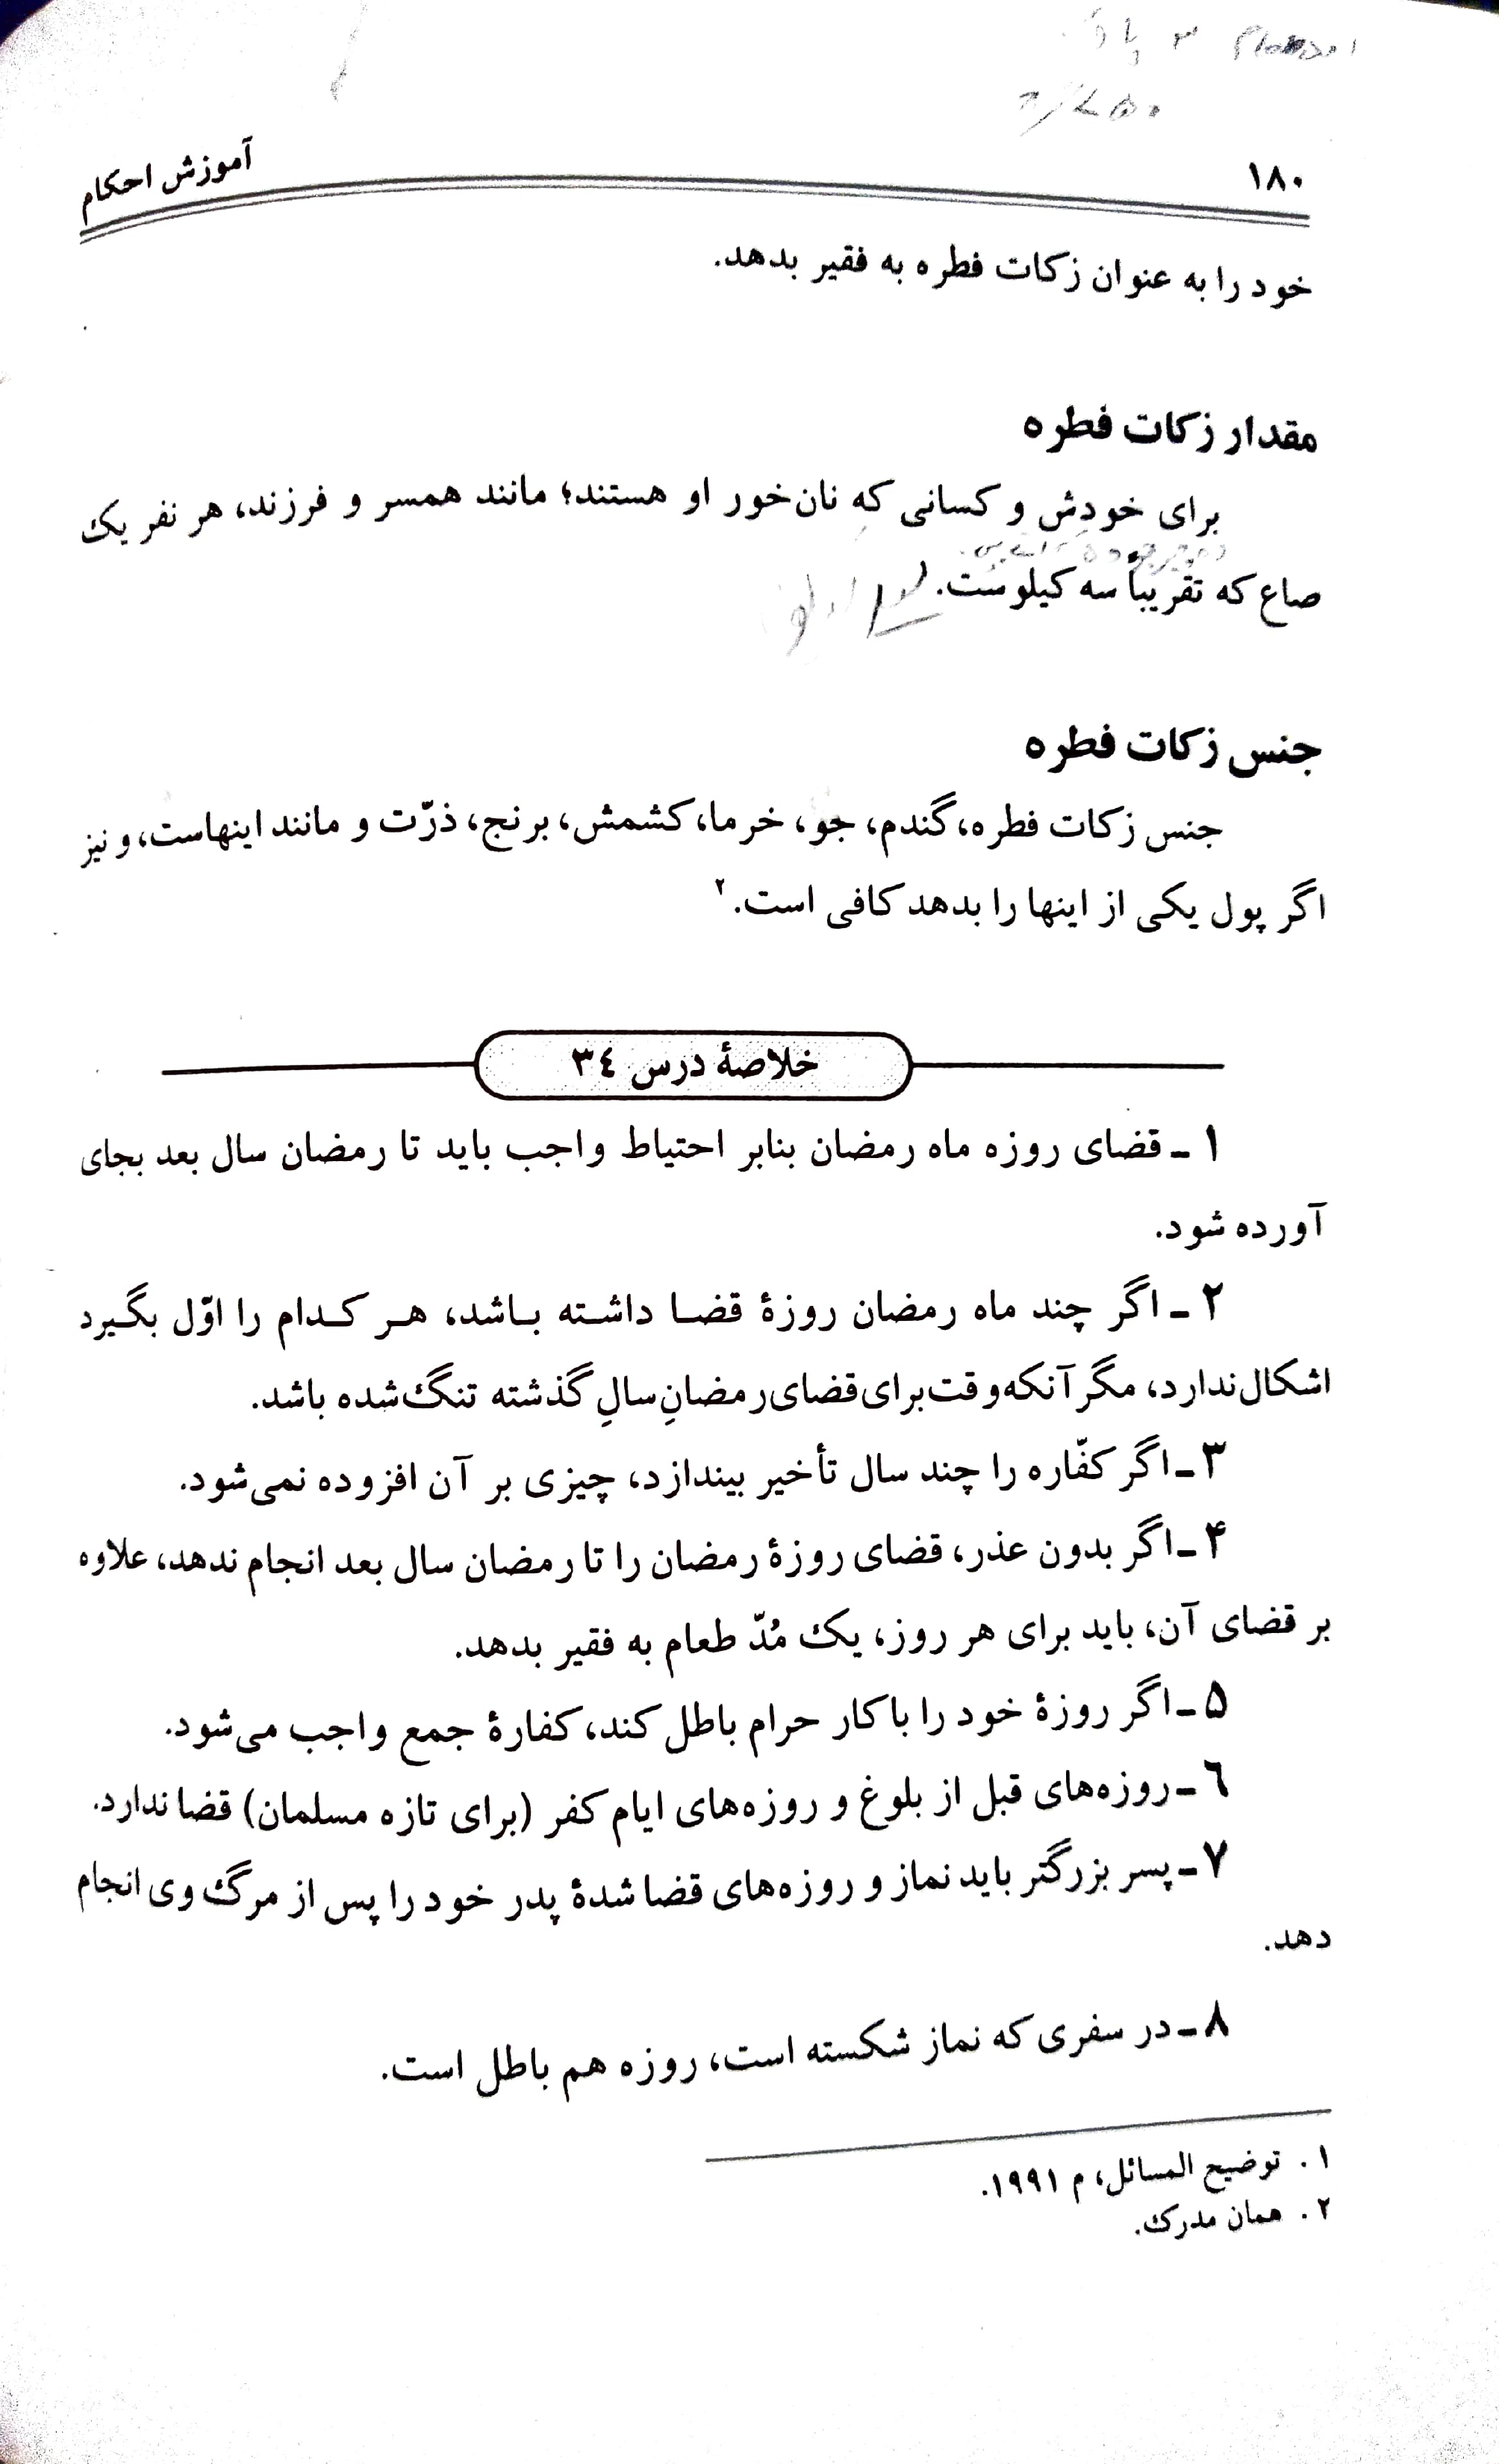 ۱۸۰
آموزش احکام
خود را به عنوان زکات فطره به فقیر بدهد.
مقدار زکات فطره
برای خودش و کسانی که نان‌خور او هستند؛ مانند همسر و فرزند، هر نفر یک
صاع که تقریباً سه کیلوست.
جنس زکات فطره
جنس زکات فطره، گندم، جو، خرما، کشمش، برنج، ذرّت و مانند اینهاست، و نیز
اگر پول یکی از اینها را بدهد کافی است.۲
خلاصهٔ درس ۳٤
۱ ـ قضای روزه ماه رمضان بنابر احتیاط واجب باید تا رمضان سال بعد بجای
آورده شود.
۲ ـ اگر چند ماه رمضان روزهٔ قضا داشته باشد، هر کدام را اوّل بگیرد
اشکال ندارد، مگر آنکه وقت برای قضای رمضانِ سالِ گذشته تنگ شده باشد.
۳ ـ اگر کفّاره را چند سال تأخیر بیندازد، چیزی بر آن افزوده نمی‌شود.
۴ ـ اگر بدون عذر، قضای روزهٔ رمضان را تا رمضان سال بعد انجام ندهد، علاوه
بر قضای آن، باید برای هر روز، یک مُدّ طعام به فقیر بدهد.
۵ ـ اگر روزهٔ خود را با کار حرام باطل کند، کفارهٔ جمع واجب می‌شود.
٦ ـ روزه‌های قبل از بلوغ و روزه‌های ایام کفر (برای تازه مسلمان) قضا ندارد.
۷ ـ پسر بزرگتر باید نماز و روزه‌های قضا شدهٔ پدر خود را پس از مرگ وی انجام
دهد.
۸ ـ در سفری که نماز شکسته است، روزه هم باطل است.
۱ . توضیح المسائل، م ۱۹۹۱.
۲ . همان مدرک.